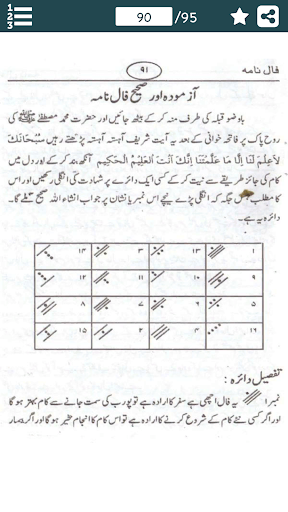 90 /95
فال نامہ
۹۱
آزمودہ اور صحیح فال نامہ
باوضو قبلہ کی طرف منہ کر کے بیٹھ جائیں اور حضرت محمد مصطفیٰ ﷺ کی
روح پاک پر فاتحہ خوانی کے بعد یہ آیت شریف آہستہ آہستہ پڑھتے رہیں سُبْحَانَكَ
لَاعِلْمَ لَنَا اِلَّا مَا عَلَّمْتَنَا اِنَّكَ اَنْتَ الْعَلِيْمُ الْحَكِيْم آنکھ بند کر کے اور دل میں
کام کی جائز طریقے سے نیت کر کے کسی ایک دائرے پر شہادت کی انگلی رکھیں اور اس
کا مطلب جس جگہ کہ انگلی پڑے نیچے اس نمبر یا نشان پر جواب انشاء اللہ صحیح ملے گا۔
دائرہ یہ ہے۔
۱ ۱۳ ۳ ۱۳
۹ ۱۰ ۱۱ ۱۲
۵ ۶ ۷ ۸
۱۶ ۴ ۲ ۱۵
تفصیل دائرہ :
نمبر۱ یہ فال اچھی ہے سفر کا ارادہ ہے تو پورب کی سمت جانے سے کام بہتر ہوگا
اور اگر کسی نئے کام کے شروع کرنے کا ارادہ ہے تو اس کا م کا انجام بخیر ہوگا اور اگر بیمار